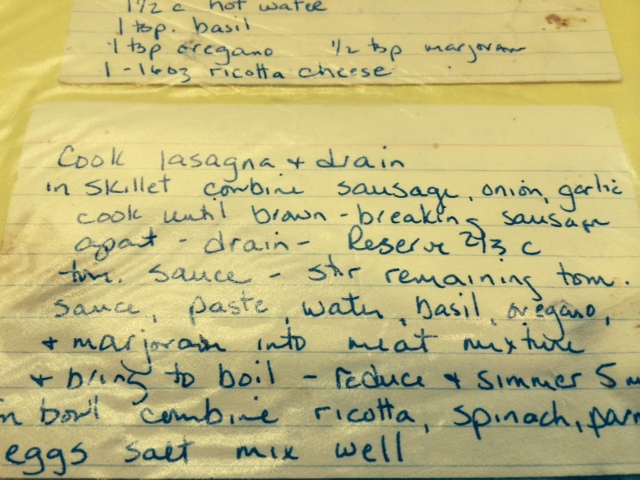 1 1/2 c hot water
1 tsp. basil
1 tsp oregano 1/2 tsp marjoram
1 - 16oz ricotta cheese
Cook lasagna + drain
in skillet combine sausage, onion, garlic
cook until brown - breaking sausage
apart - drain - Reserve 2/3 c
tom. sauce - stir remaining tom.
sauce, paste, water, basil, oregano,
+ marjoram into meat mixture
+ bring to boil - reduce + simmer 5 m
in bowl combine ricotta, spinach, parm
eggs salt mix well